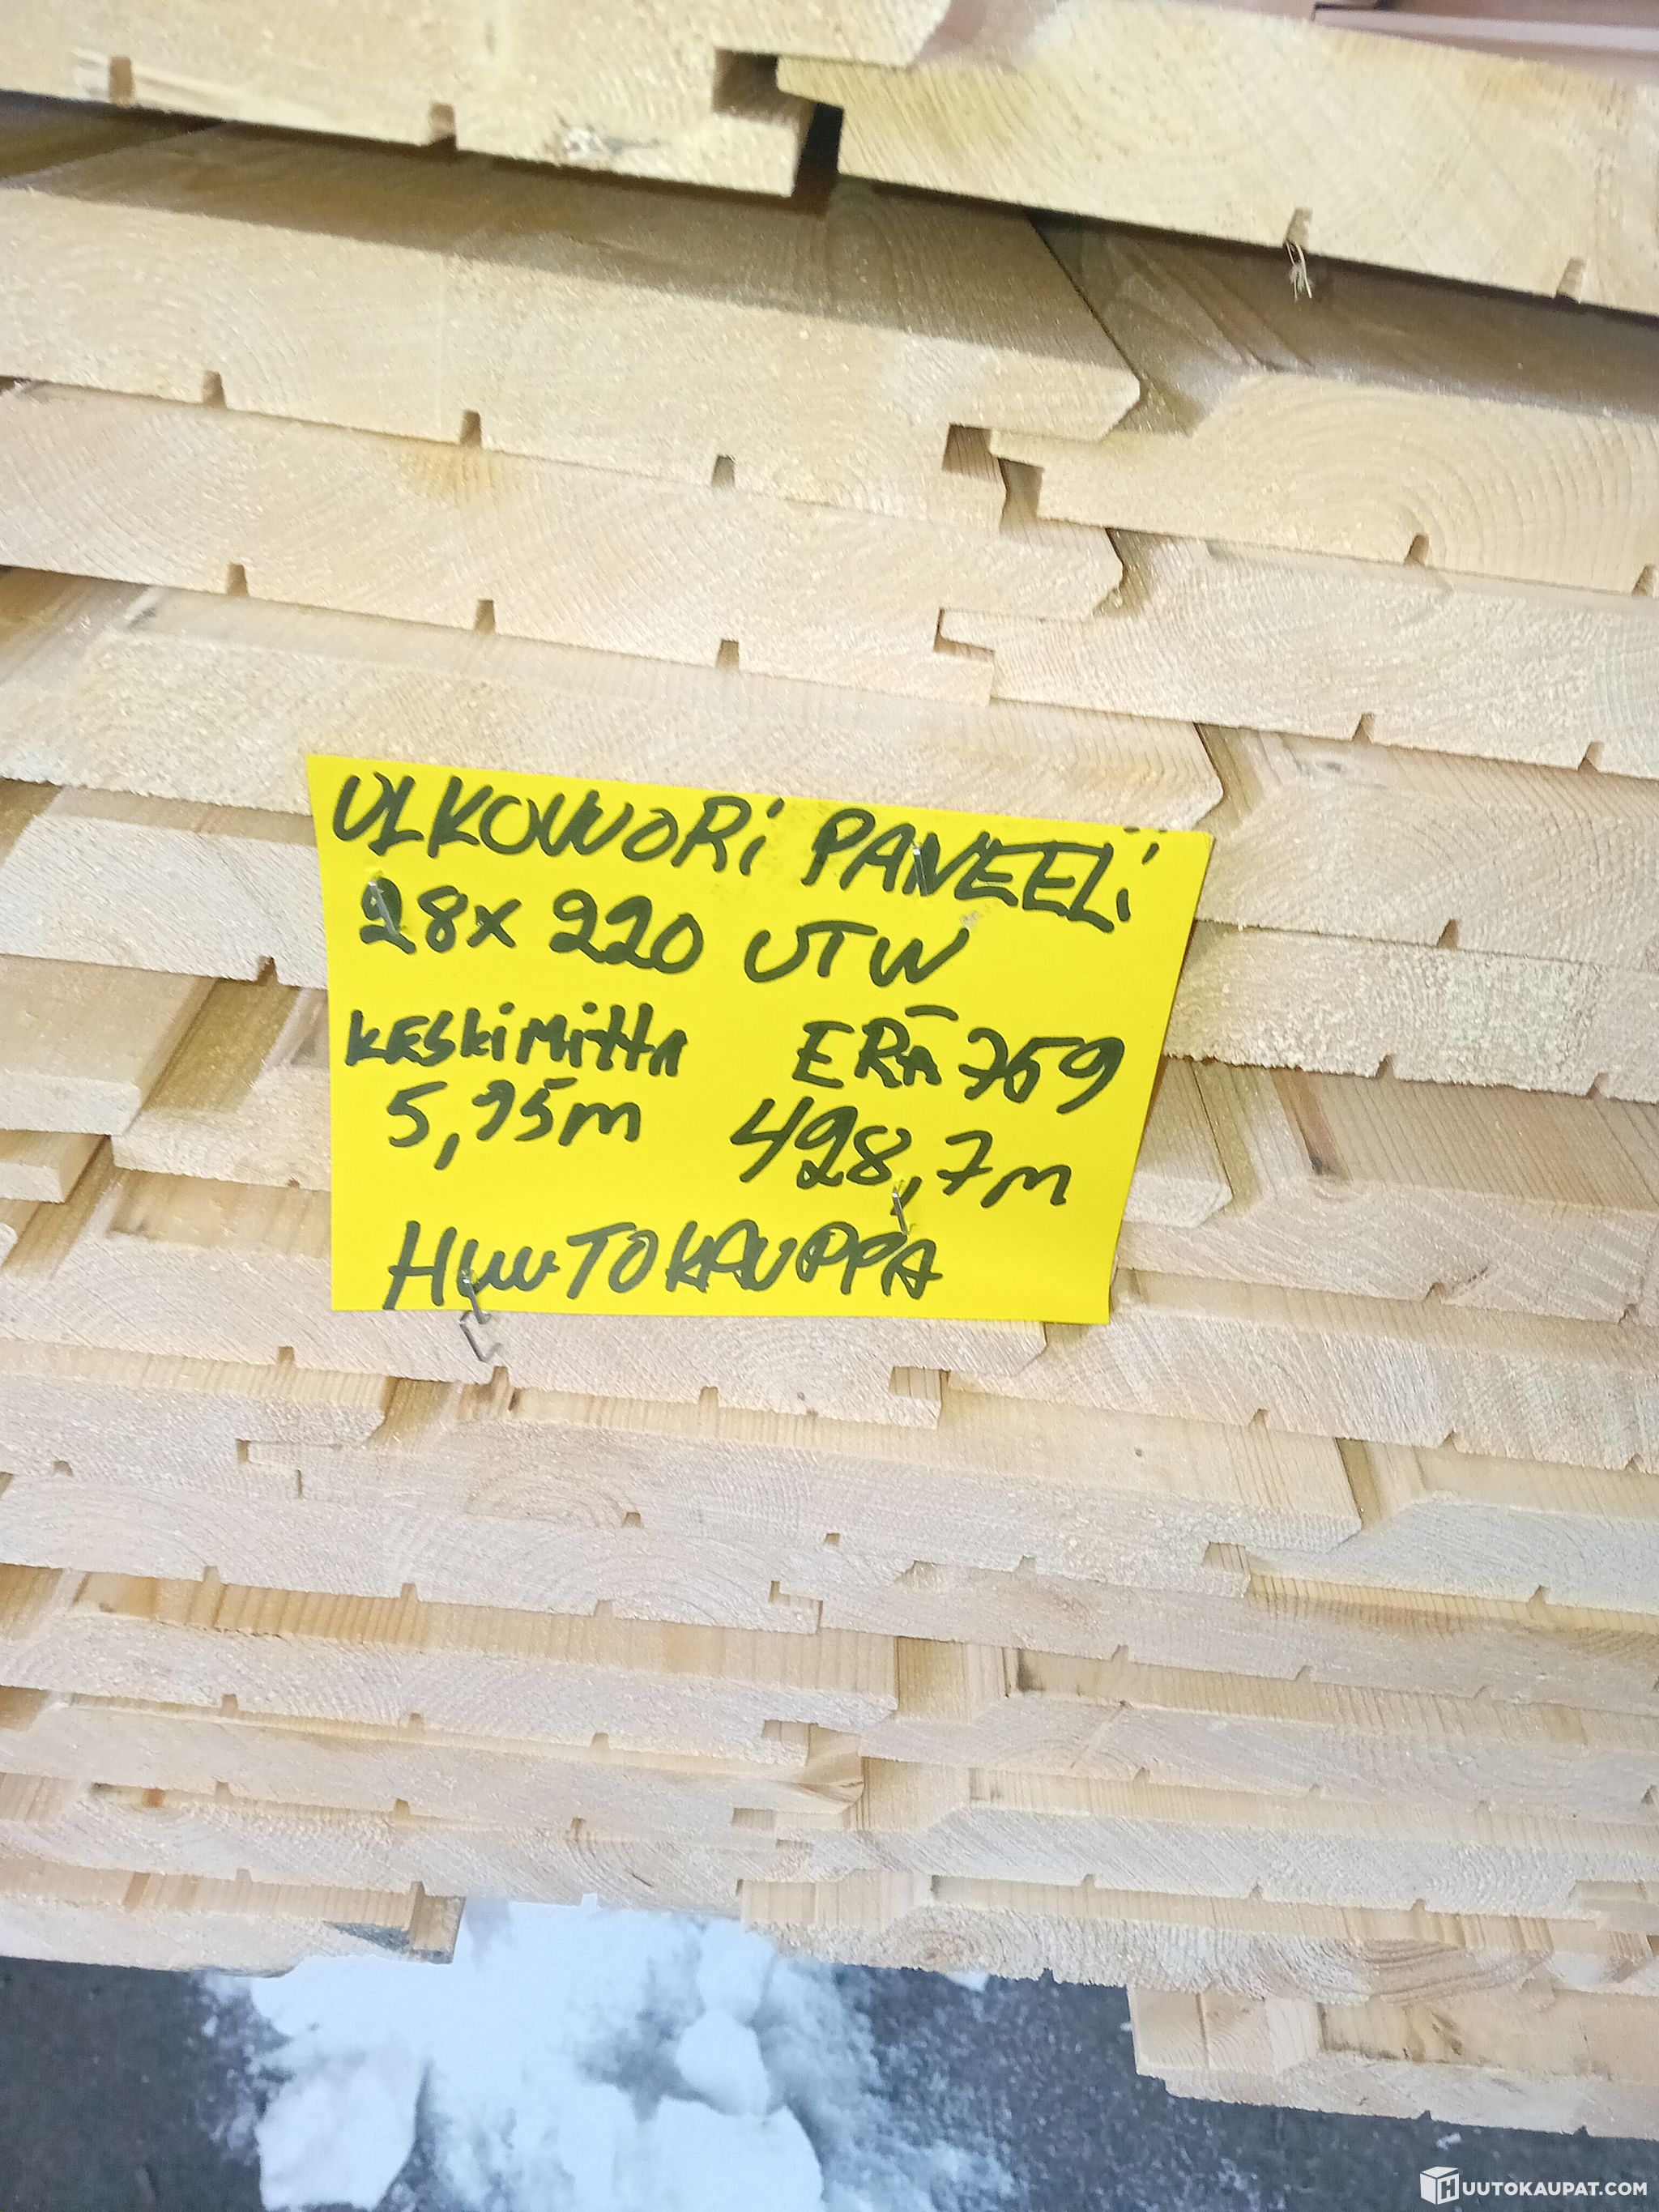 ULKOVUORi PANEELi
28x 220 UTW
KESKiMiTTA ERÄ 769
5,95m 498,7m
HUUTOKAUPPA
HUUTOKAUPAT.COM